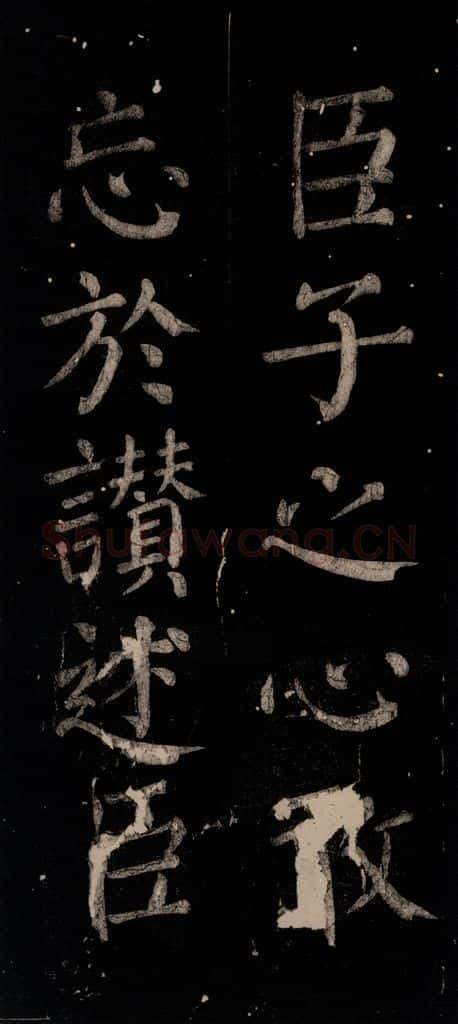 臣子之心敢
忘於讃述臣
Shufawang.CN